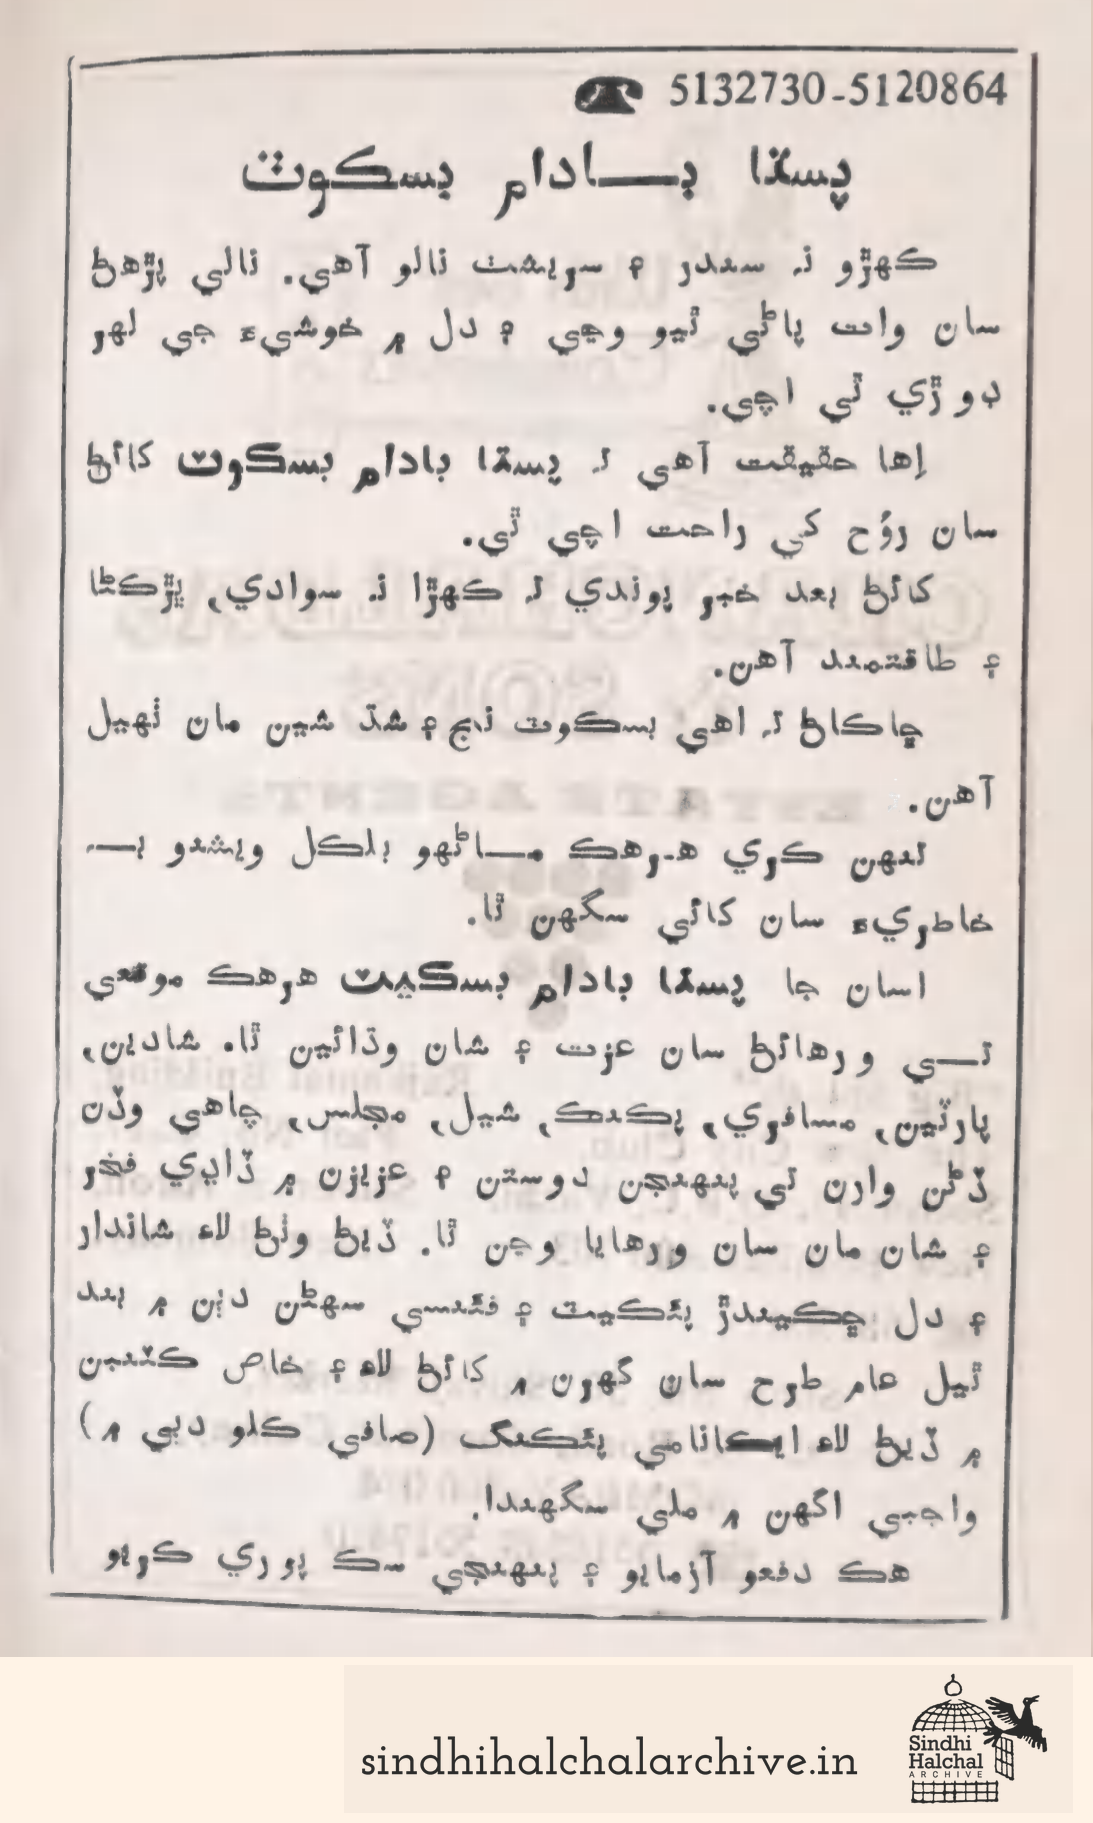 5132730-5120864
پستا بـــادام بسڪوٽ
ڪهڙو نہ سندر ۽ سريشٽ نالو آهي. نالي پڙهڻ
سان وات پاڻي ٿيو وڃي ۽ دل ۾ خوشيءَ جي لهر
ڊوڙي ٿي اچي.
اِها حقيقت آهي تہ پستا بادام بسڪوٽ کائڻ
سان رُوح کي راحت اچي ٿي.
کائڻ بعد خبر پوندي تہ ڪهڙا نہ سوادي، ڀڙڪڻا
۽ طاقتمند آهن.
ڇاڪاڻ تہ اهي بسڪوٽ نج ۽ شڌ شين مان ٺهيل
آهن.
تنهن ڪري هـرهڪ مـــاڻهو بلڪل ويشنو بـــہ
خاطريءَ سان کائي سگهن ٿا.
اسان جا پستا بادام بسڪيٽ هرهڪ موقعي
تـــي ورهائڻ سان عزت ۽ شان وڌائين ٿا. شادين،
پارٽين، مسافري، پڪنڪ، شيل، مجلس، چاهي وڏن
ڏڻن وارن تي پنهنجن دوستن ۽ عزيزن ۾ ڏاڍي فخر
۽ شان مان سان ورهايا وڃن ٿا. ڏيڻ وٺڻ لاءِ شاندار
۽ دل ڇڪيندڙ پئڪيٽ ۽ فئنسي سهڻن دٻن ۾ بند
ٿيل عام طرح سان گهرن ۾ کائڻ لاءِ ۽ خاص ڪٽنبن
۾ ڏيڻ لاءِ ايڪانامي پئڪنگ (صافي ڪلو دٻي ۾)
واجبي اگهن ۾ ملي سگهندا.
هڪ دفعو آزمايو ۽ پنهنجي سڪ پوري ڪريو
sindhihalchalarchive.in
Sindhi
Halchal
ARCHIVE